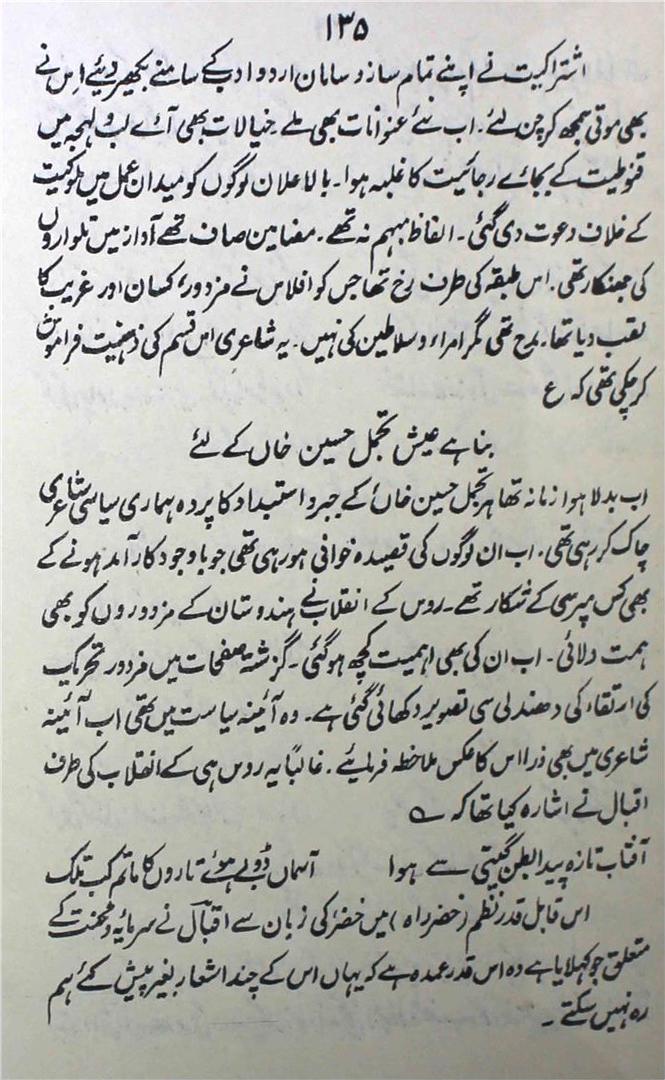 ۱۳۵
اشتراکیت نے اپنے تمام ساز و سامان اردو ادب کے سامنے بکھیر دیئے اس نے
بھی موتی سمجھ کر چن لئے۔ اب نئے عنوانات بھی ملے خیالات بھی آئے لب و لہجہ میں
قنوطیت کے بجائے رجائیت کا غلبہ ہوا۔ بالاعلان لوگوں کو میدان عمل میں ملوکیت
کے خلاف دعوت دی گئی۔ الفاظ مبہم نہ تھے۔ مضامین صاف تھے آواز میں تلواروں
کی جھنکار تھی۔ اس طبقہ کی طرف رخ تھا جس کو افلاس نے مزدور، کسان اور غریب کا
لقب دیا تھا۔ مدح تھی مگر امراء و سلاطین کی نہیں۔ یہ شاعری اس قسم کی ذہنیت فراموش
کر چکی تھی کہ ع
بنا ہے عیش تجمل حسین خاں کے لئے
اب بدلا ہوا زمانہ تھا ہر تجمل حسین خاں کے جبر و استبداد کا پردہ ہماری سیاسی شاعری
چاک کر رہی تھی۔ اب ان لوگوں کی قصیدہ خوانی ہو رہی تھی جو باوجود کارآمد ہونے کے
بھی کس مپرسی کے شکار تھے۔ روس کے انقلاب نے ہندوستان کے مزدوروں کو بھی
ہمت دلائی۔ اب ان کی بھی اہمیت کچھ ہو گئی۔ گزشتہ صفحات میں مزدور تحریک
کی ارتقاء کی دھندلی سی تصویر دکھائی گئی ہے۔ وہ آئینہ سیاست میں تھی اب آئینہ
شاعری میں بھی ذرا اس کا عکس ملاحظہ فرمائیے۔ غالباً یہ روس ہی کے انقلاب کی طرف
اقبال نے اشارہ کیا تھا کہ ؎
آفتاب تازہ پیدا بطن گیتی سے ہوا آسماں ڈوبے ہوئے تاروں کا ماتم کب تلک
اس قابل قدر نظم (خضر راہ) میں خضرؑ کی زبان سے اقبالؔ نے سرمایہ و محنت کے
متعلق جو کہلایا ہے وہ اس قدر عمدہ ہے کہ یہاں اس کے چند اشعار بغیر پیش کئے ہم
رہ نہیں سکتے۔